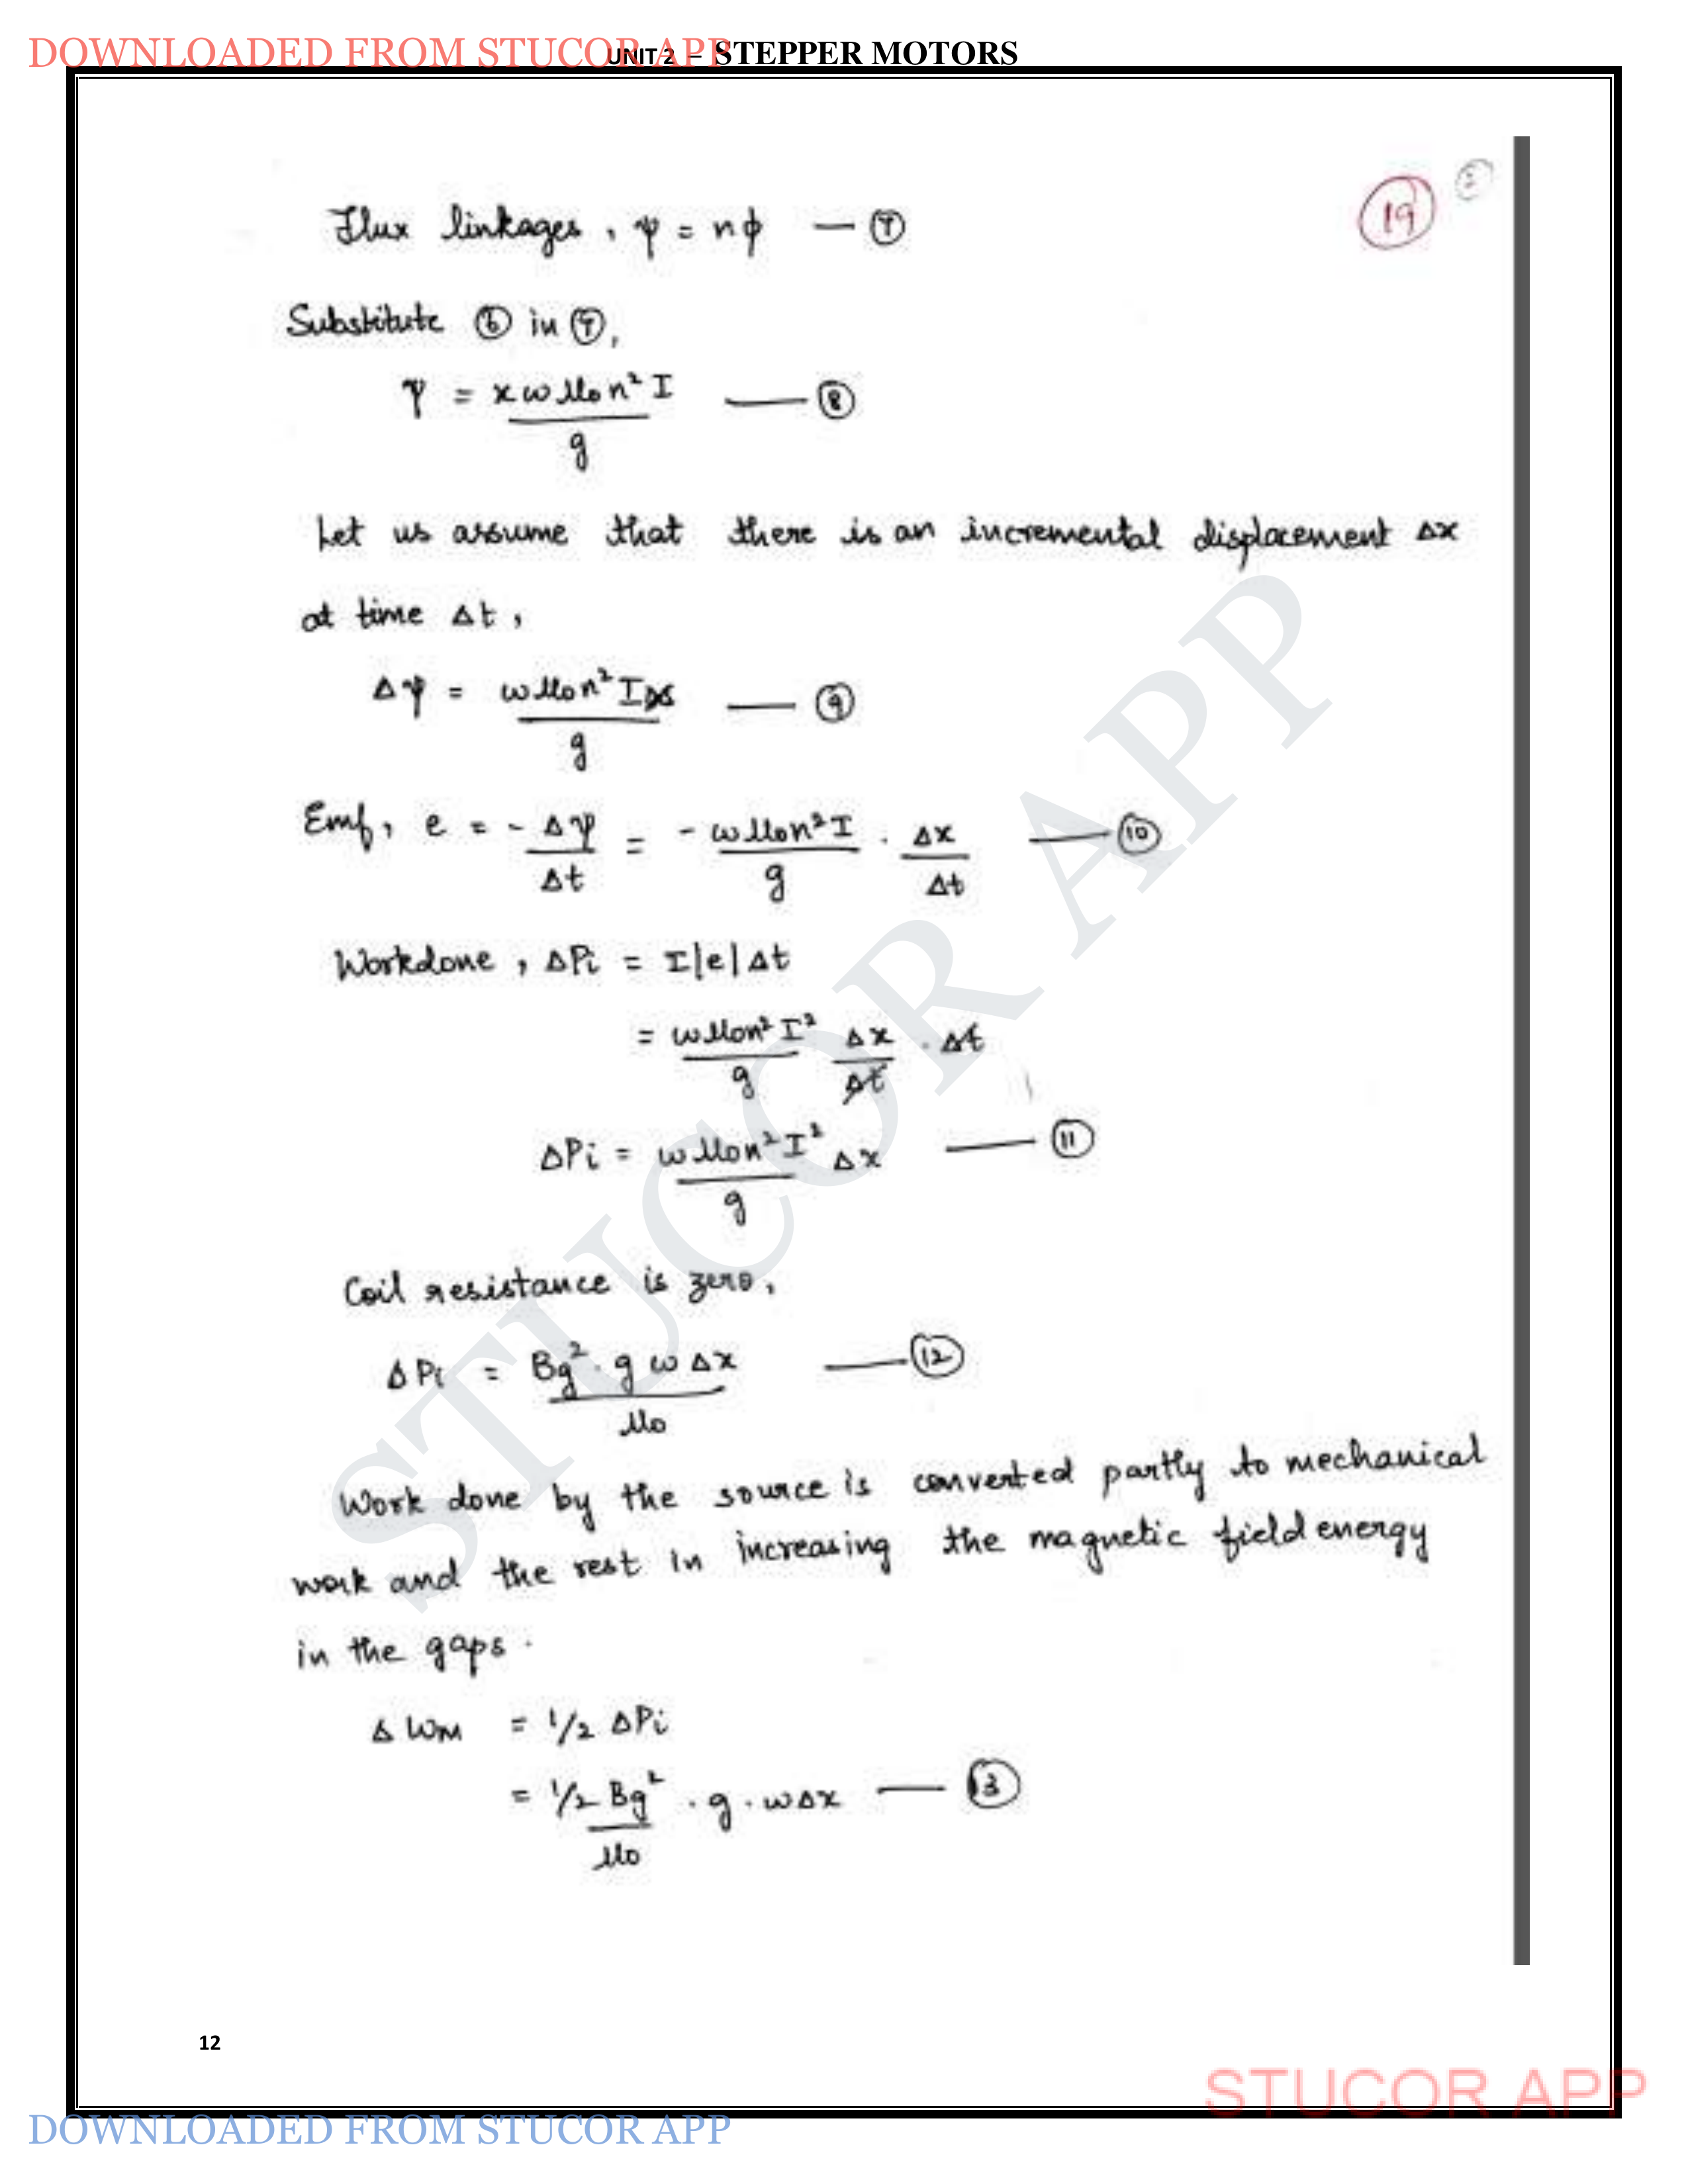 DOWNLOADED FROM STUCOR APP
UNIT 2 – STEPPER MOTORS
19
Flux linkages, ψ = nφ — ⑦
Substitute ⑥ in ⑦,
ψ = xωμ₀n²I / g — ⑧
Let us assume that there is an incremental displacement Δx
at time Δt,
Δψ = ωμ₀n²IΔx / g — ⑨
Emf, e = -Δψ/Δt = -ωμ₀n²I/g · Δx/Δt — ⑩
Workdone, ΔPi = I|e|Δt
= ωμ₀n²I²/g Δx/Δt · Δt
ΔPi = ωμ₀n²I²/g Δx — ⑪
Coil resistance is zero,
ΔPi = Bg²·gωΔx / μ₀ — ⑫
Work done by the source is converted partly to mechanical
work and the rest in increasing the magnetic field energy
in the gaps.
ΔWM = 1/2 ΔPi
= 1/2 Bg²/μ₀ · g · ωΔx — ⑬
STUCOR APP
12
STUCOR APP
DOWNLOADED FROM STUCOR APP